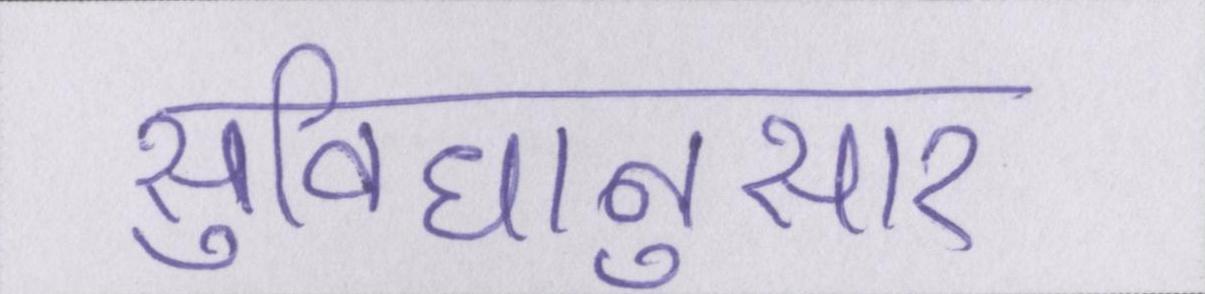 सुविधानुसार